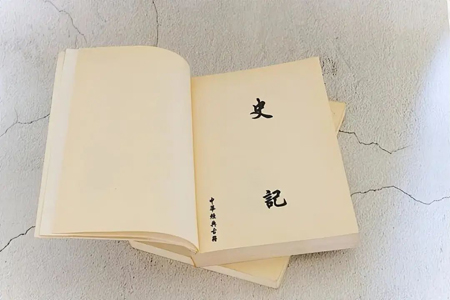 史記
中華經典古籍